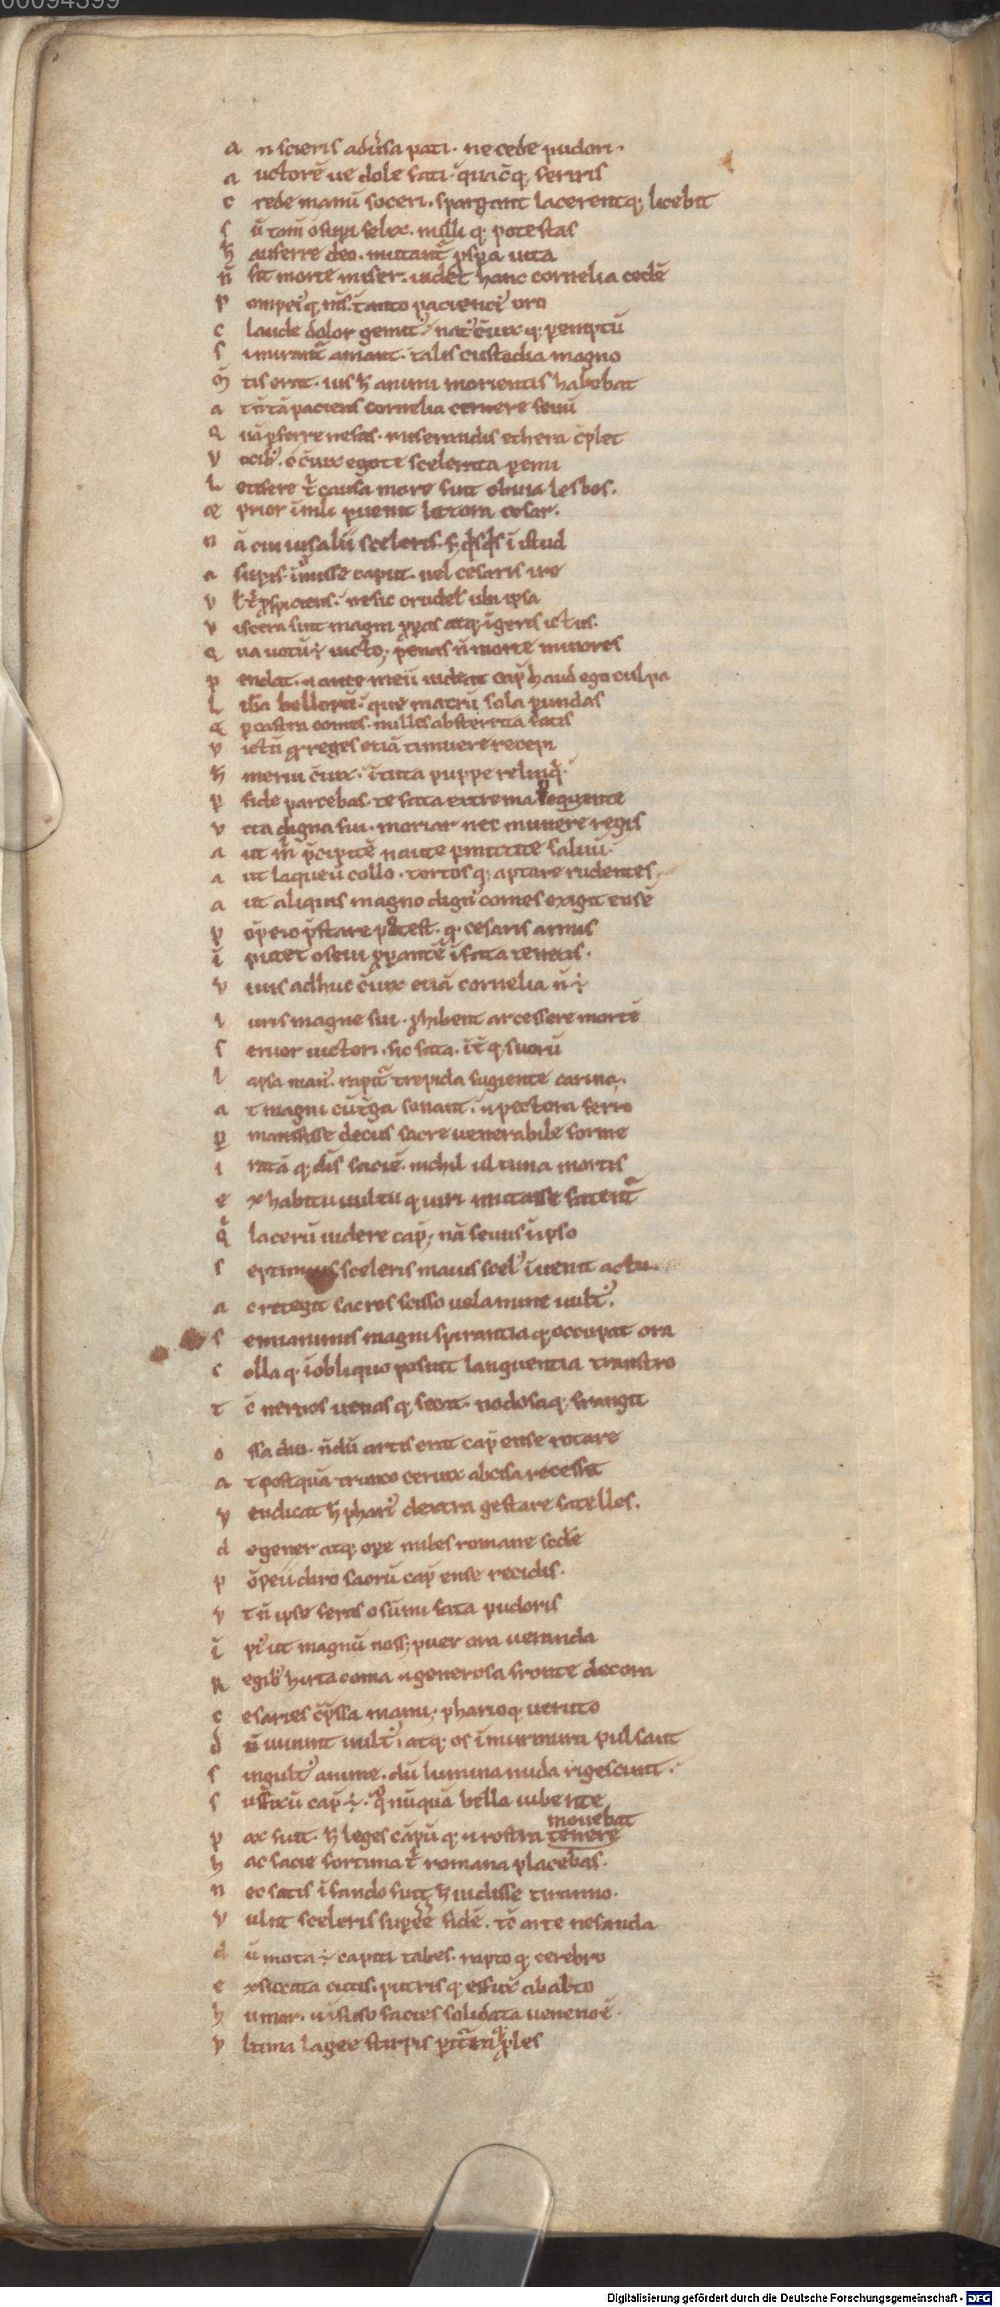 00094399
a n scieris adu͛sa pati · ne cede pudori ·
a uctorē ue dole fati · quacūq; feriris
c rede manū soceri · spargant lacerentq; licebit
s ū tam̄ o sup̄i felix · nulli q; potestas
h̄ auferre deo · mutant᷑ ꝓspa uita
n̄ fit morte miser · uidet hanc cornelia cedē
P ompeiq; m̄s · tanto pacienci᷒ oro
c laude dolor gemit᷒ · nat᷒ c̄iux q; peremptū
s i mirant᷑ amant · talis custodia magno
m̄ tis erat · ius h̄ animi morientis habebat
a t n̄ tā paciens cornelia cernere seuū
Q uā ꝑferre nefas · miserandis ethera c̄plet
V ocib᷒ · o c̄iux ego te scelerata peremi
L etifere t͛ causa more fuit obuia lesbos ·
æ prior ī nili puenit litora cesar ·
n ā cui ius alii sceleris · s; q̇sq̇s ī istud
a supis īmisse caput · uel cesaris ire
V l̄ t͛ ꝓspiciens · nescis crudel᷒ ubi ipsa
V iscera sint magni ꝓperas atq; īgeris ictus ·
Q ua uotū ÷ uicto; penas n̄ morte minores
p endat · ⁊ ante meū uideat cap̄ haud ego culpa
L ib͛a bellorū · que matrū sola p undas
& p castra comes · nullis absterrita fatis
V ictū qd reges etiā timuere recepi
h̄ merui c̄iux · ī tuta puppe relinq̇ ·
p fide parcebas · te fata extrema petente
V ita digna fui · moriar nec munere regis
a ut m̄ p̄cipitē naute permittite saltū ·
a ut laqueū collo · tortos q; aptare rudentes ·
a ut aliquis magno dign᷒ comes exigat ensē
p ōpeio p̄stare potest · q; cesaris armis
ī putet o seui ꝓperantē ī fata tenetis ·
V iuis adhuc c̄iux etiā cornelia n̄ ÷
i uris magne sui · ꝓhibent arcessere mortē
s eruor uictori · sic fata · īt͛ q; suorū
l apsa man᷒ · rapit᷑ trepida fugiente carina ·
a t magni cū t͛ga sonant · ⁊ pectora ferro
p mansisse decus sacre uenerabile forme
i ratā q; dis faciē · nichil ultima mortis
e x habitu uultu q; uiri mutasse fatent᷑
q̇ lacerū uidere cap̄ ; nā seuus ī ipso
s eptimius sceleris maius scel᷒ īuenit actu ·
a c retegit sacros scisso uelamine uult᷒ ·
s emianimis magni spirantia q; occupat ora
c olla q; ī obliquo posuit languentia transtro
t c̄ neruos uenas q; secat · nodosaq; frangit
o ssa diu · n̄dū artis erat cap̄ ense rotare
a t postquā trunco ceruix abscisa recessit
v endicat h̄ phari᷒ dextra gestare satelles ·
d egener atq; ope miles romane sc͛de
p ōpeii diro sacrū cap̄ ense recidis ·
v t n̄ ipse feras o sūmi fata pudoris
ī pi᷒ ut magnū noss; puer ora ueranda
R egib᷒ hirta coma ⁊ generosa fronte decora
c esaries c̄p̄ssa manu ; pharioq; ueruto
d ū uiuunt uult᷒ · atq; os ī murmura pulsant
s ingult᷒ anime · dū lumina nuda rigescunt ·
s uffixū cap̄ ÷ · qͦ nūquā bella iubente
movebat
p ax fuit · h̄ leges cāpū q; ⁊ rostra tenere
h ac facie fortuna t͛ romana placebas ·
n ec satis ī fando fuit h̄ uidisse tiranno ·
V ult sceleris supeē fidē · tc̄ arte nefanda
d ū mota ÷ capiti tabes · rapto q; cerebro
e xsiccata cutis · putris q; effluxit ab alto
h umor · ⁊ īfuso facies solidata ueneno ē ·
V ltima lagee stirpis peritura q; ꝓles
Digitalisierung gefördert durch die Deutsche Forschungsgemeinschaft - DFG